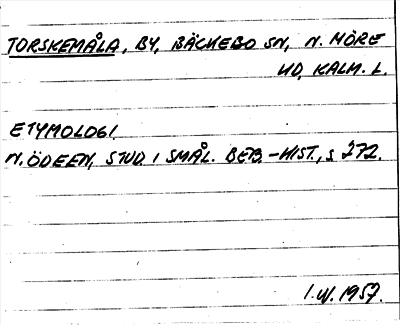 TORSKEMÅLA, BY, BÄCKEBO SN, N. MÖRE
HD, KALM. L.
ETYMOLOGI.
N. ÖDEEN, STUD. I SMÅL. BEB.-HIST., S 272.
I. W. 1957.